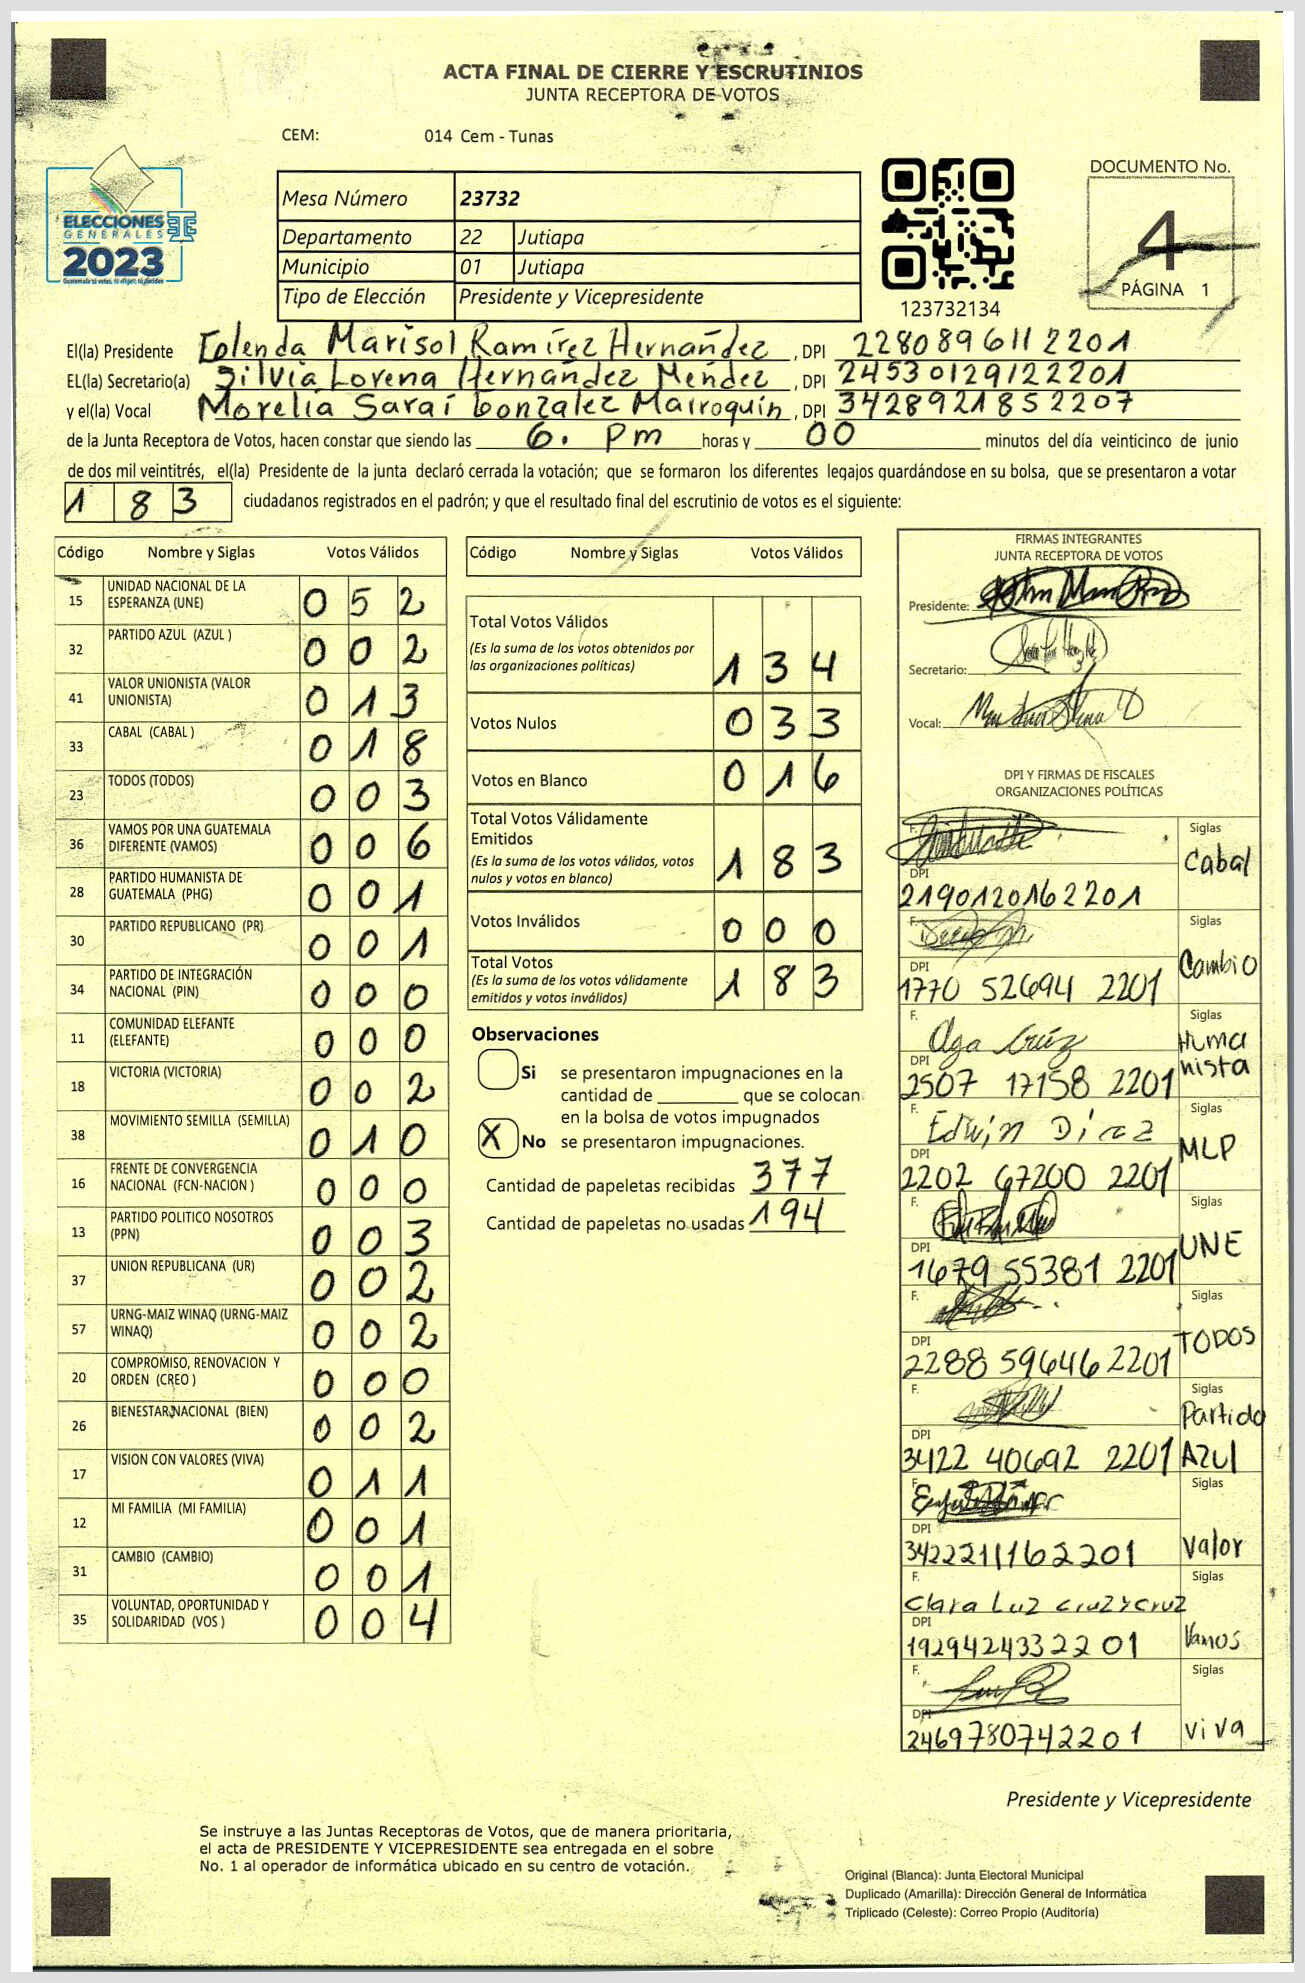 ACTA FINAL DE CIERRE Y ESCRUTINIOS
JUNTA RECEPTORA DE VOTOS
CEM: 014 Cem - Tunas
ELECCIONES
GENERALES
2023
Guatemala tú votas, tú eliges, tú decides
Mesa Número 23732
Departamento 22 Jutiapa
Municipio 01 Jutiapa
Tipo de Elección Presidente y Vicepresidente
123732134
DOCUMENTO No.
4
PÁGINA 1
El(la) Presidente Marisol Ramírez Hernández, DPI 2280896112201
EL(la) Secretario(a) Silvia Lorena Hernández Méndez, DPI 2453012912 2201
y el(la) Vocal Morelia Saraí Gonzalez Marroquín, DPI 3428921852207
de la Junta Receptora de Votos, hacen constar que siendo las 6. pm horas y 00 minutos del día veinticinco de junio
de dos mil veintitrés, el(la) Presidente de la junta declaró cerrada la votación; que se formaron los diferentes legajos guardándose en su bolsa, que se presentaron a votar
1 8 3 ciudadanos registrados en el padrón; y que el resultado final del escrutinio de votos es el siguiente:
Código Nombre y Siglas Votos Válidos
15 UNIDAD NACIONAL DE LA ESPERANZA (UNE) 0 5 2
32 PARTIDO AZUL (AZUL ) 0 0 2
41 VALOR UNIONISTA (VALOR UNIONISTA) 0 1 3
33 CABAL (CABAL ) 0 1 8
23 TODOS (TODOS) 0 0 3
36 VAMOS POR UNA GUATEMALA DIFERENTE (VAMOS) 0 0 6
28 PARTIDO HUMANISTA DE GUATEMALA (PHG) 0 0 1
30 PARTIDO REPUBLICANO (PR) 0 0 1
34 PARTIDO DE INTEGRACIÓN NACIONAL (PIN) 0 0 0
11 COMUNIDAD ELEFANTE (ELEFANTE) 0 0 0
18 VICTORIA (VICTORIA) 0 0 2
38 MOVIMIENTO SEMILLA (SEMILLA) 0 1 0
16 FRENTE DE CONVERGENCIA NACIONAL (FCN-NACION ) 0 0 0
13 PARTIDO POLITICO NOSOTROS (PPN) 0 0 3
37 UNION REPUBLICANA (UR) 0 0 2
57 URNG-MAIZ WINAQ (URNG-MAIZ WINAQ) 0 0 2
20 COMPROMISO, RENOVACION Y ORDEN (CREO ) 0 0 0
26 BIENESTAR NACIONAL (BIEN) 0 0 2
17 VISION CON VALORES (VIVA) 0 1 1
12 MI FAMILIA (MI FAMILIA) 0 0 1
31 CAMBIO (CAMBIO) 0 0 1
35 VOLUNTAD, OPORTUNIDAD Y SOLIDARIDAD (VOS ) 0 0 4
Código Nombre y Siglas Votos Válidos
Total Votos Válidos
(Es la suma de los votos obtenidos por
las organizaciones políticas) 1 3 4
Votos Nulos 0 3 3
Votos en Blanco 0 1 6
Total Votos Válidamente
Emitidos
(Es la suma de los votos válidos, votos
nulos y votos en blanco) 1 8 3
Votos Inválidos 0 0 0
Total Votos
(Es la suma de los votos válidamente
emitidos y votos inválidos) 1 8 3
Observaciones
Si se presentaron impugnaciones en la
cantidad de ________ que se colocan
en la bolsa de votos impugnados
X No se presentaron impugnaciones.
Cantidad de papeletas recibidas 377
Cantidad de papeletas no usadas 194
FIRMAS INTEGRANTES
JUNTA RECEPTORA DE VOTOS
Presidente:
Secretario:
Vocal:
DPI Y FIRMAS DE FISCALES
ORGANIZACIONES POLÍTICAS
F. Siglas
Cabal
DPI
2190120162201
F. Siglas
Cambio
DPI
1770 52694 2201
F. Olga Cruz Siglas
Humanista
DPI
2507 17158 2201
F. Edwin Díaz Siglas
MLP
DPI
2202 67200 2201
F. Siglas
UNE
DPI
1679 55381 2201
F. Siglas
TODOS
DPI
2288 59646 2201
F. Siglas
Partido
Azul
DPI
3422 40692 2201
F. Siglas
Valor
DPI
3422211162201
F. Siglas
Clara Luz Cruz y Cruz
Vamos
DPI
1929424332201
F. Siglas
Viva
DPI
2469780742201
Presidente y Vicepresidente
Se instruye a las Juntas Receptoras de Votos, que de manera prioritaria,
el acta de PRESIDENTE Y VICEPRESIDENTE sea entregada en el sobre
No. 1 al operador de informática ubicado en su centro de votación.
Original (Blanca): Junta Electoral Municipal
Duplicado (Amarilla): Dirección General de Informática
Triplicado (Celeste): Correo Propio (Auditoría)